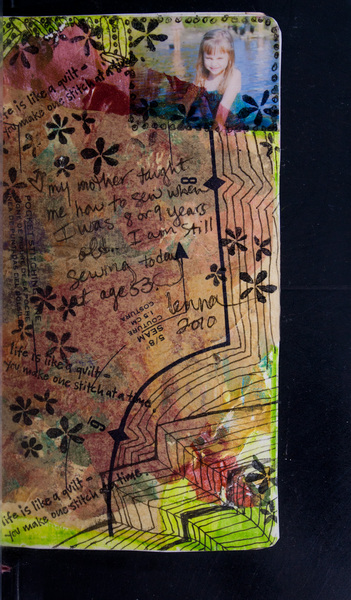 life is like a quilt -
you make one stitch at a time.
my mother taught
me how to sew when
I was 8 or 9 years
old.. I am still
sewing today
at age 53.
2010
8
5/8
SEAM
COUTURE
1.5 CM
COSTURA
life is like a quilt -
you make one stitch at a time.
6
life is like a quilt -
you make one stitch at a time.